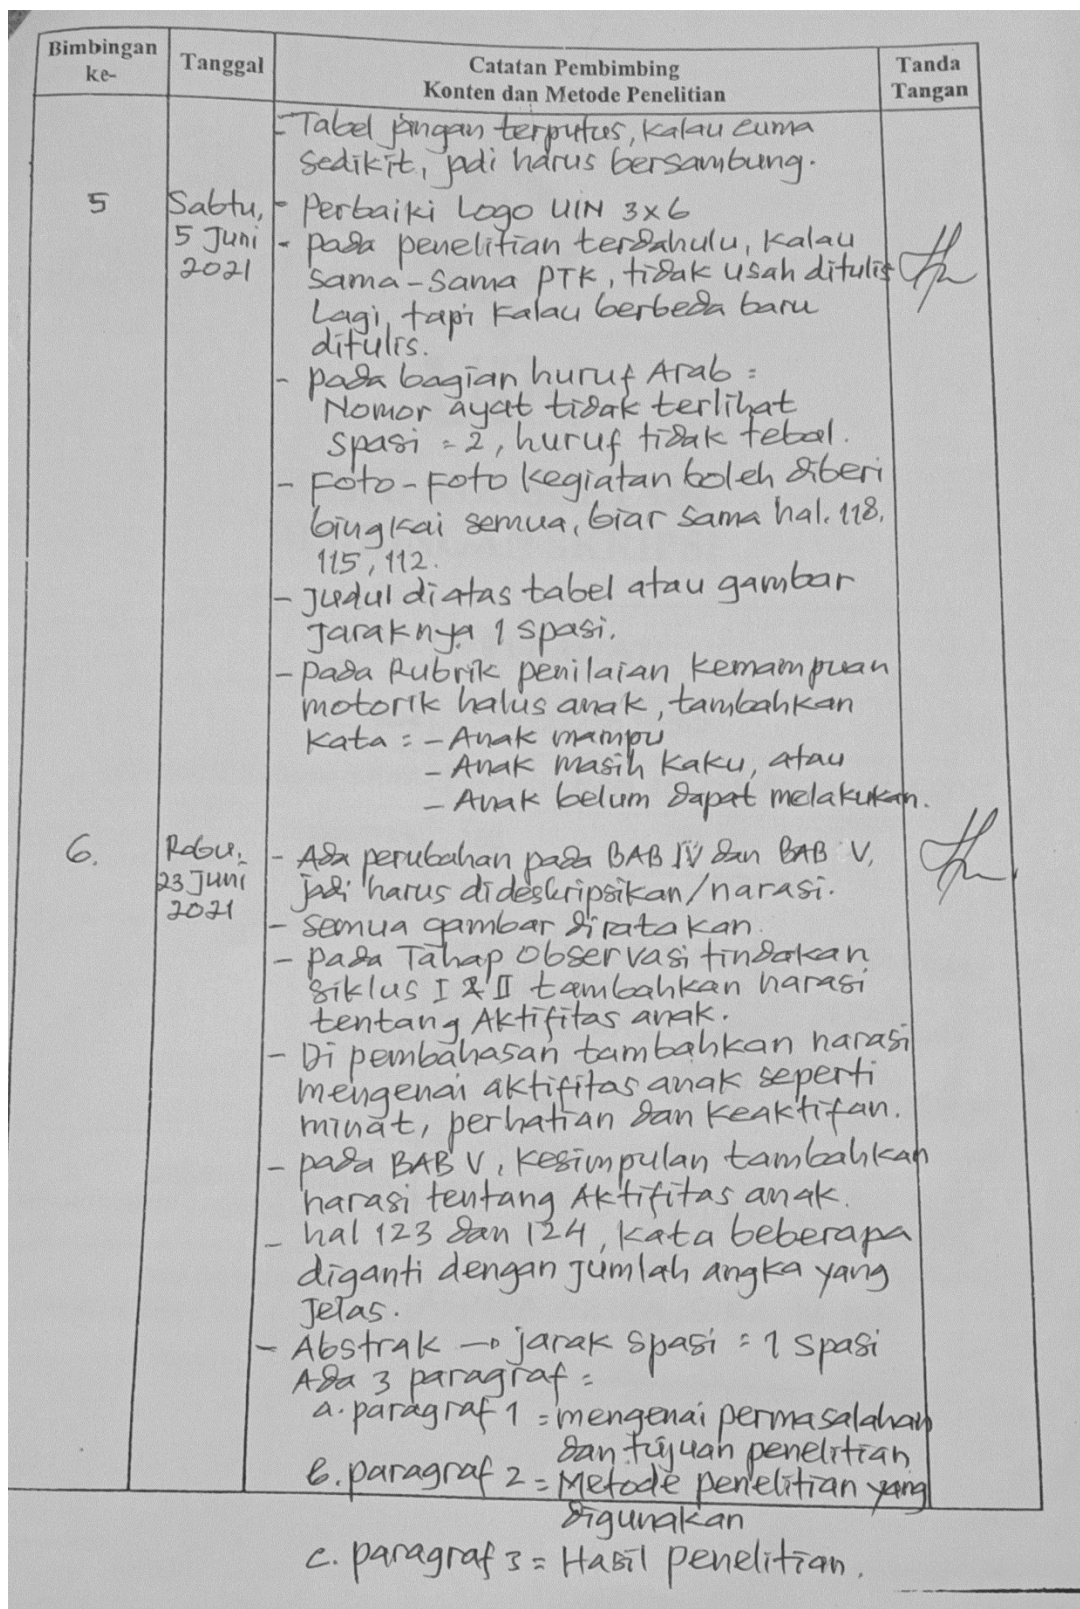 Bimbingan ke-
Tanggal
Catatan Pembimbing
Konten dan Metode Penelitian
Tanda Tangan
- Tabel jangan terputus, kalau cuma
sedikit, jadi harus bersambung.
5
Sabtu,
5 Juni
2021
- Perbaiki Logo UIN 3x6
- pada penelitian terdahulu, kalau
sama-sama PTK, tidak usah ditulis
Lagi, tapi kalau berbeda baru
ditulis.
- pada bagian huruf Arab :
Nomor ayat tidak terlihat
spasi = 2, huruf tidak tebal.
- Foto-Foto kegiatan boleh diberi
bingkai semua, biar sama hal. 118,
115, 112.
- Judul diatas tabel atau gambar
Jaraknya 1 spasi.
- pada Rubrik penilaian kemampuan
motorik halus anak, tambahkan
kata : - Anak mampu
- Anak masih kaku, atau
- Anak belum dapat melakukan.
6.
Rabu,
23 Juni
2021
- Ada perubahan pada BAB IV dan BAB V,
jadi harus dideskripsikan/narasi.
- semua gambar diratakan.
- pada Tahap Observasi tindakan
siklus I & II tambahkan narasi
tentang Aktifitas anak.
- Di pembahasan tambahkan narasi
mengenai aktifitas anak seperti
minat, perhatian dan keaktifan.
- pada BAB V, kesimpulan tambahkan
narasi tentang Aktifitas anak.
- hal 123 dan 124, kata beberapa
diganti dengan Jumlah angka yang
Jelas.
- Abstrak → jarak spasi = 1 spasi
Ada 3 paragraf =
a. paragraf 1 = mengenai permasalahan
dan tujuan penelitian
b. paragraf 2 = Metode penelitian yang
digunakan
c. paragraf 3 = Hasil penelitian.